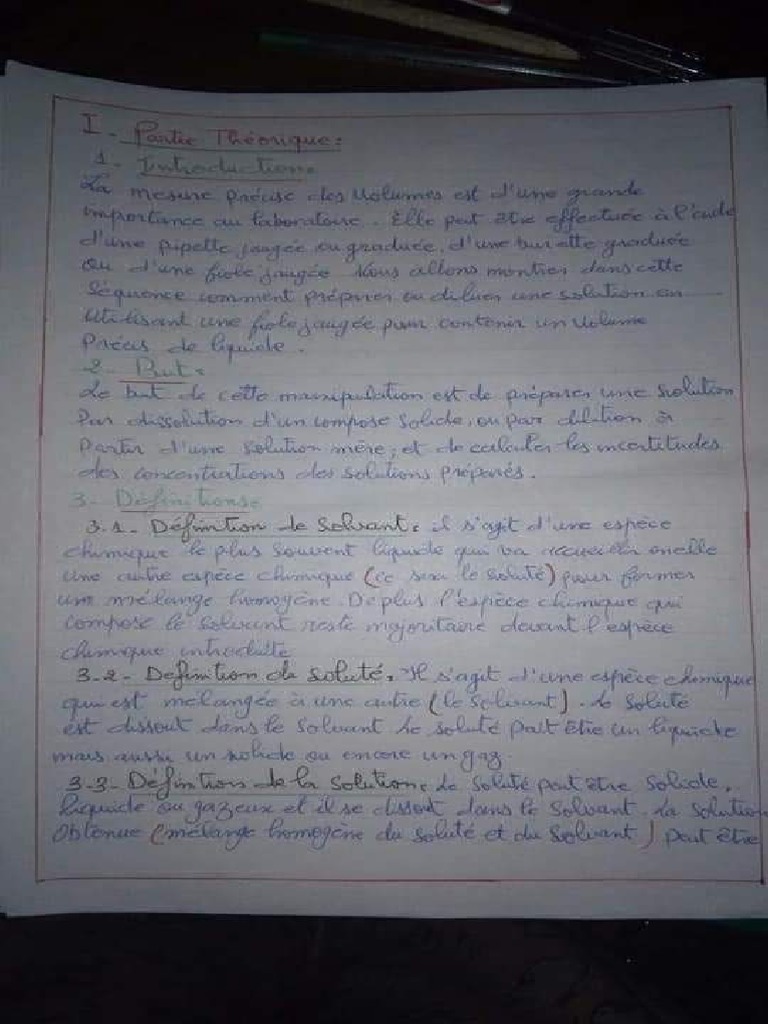 I - Partie Théorique:
1- Introduction:
La mesure précise des volumes est d'une grande
importance au laboratoire. Elle peut être effectuée à l'aide
d'une pipette jaugée ou graduée, d'une burette graduée
ou d'une fiole jaugée. Nous allons montrer dans cette
séquence comment préparer ou diluer une solution en
utilisant une fiole jaugée pour contenir un volume
Précis de liquide.
2- But:
Le but de cette manipulation est de préparer une solution
Par dissolution d'un compose solide, ou par dilution à
Partir d'une solution mère; et de calculer les incertitudes
des concentrations des solutions préparés.
3- Définitions:
3.1- Définition de Solvant: il s'agit d'une espèce
chimique le plus souvent liquide qui va accueillir en elle
une autre espèce chimique (ce sera le soluté) pour former
un mélange homogène. De plus l'espèce chimique qui
compose le solvant reste majoritaire devant l'espèce
chimique introduite
3-2- Definition de soluté: Il s'agit d'une espèce chimique
qui est mélangée à une autre (le solvant). Le soluté
est dissout dans le solvant Le soluté peut être un liquide
mais aussi un solide ou encore un gaz.
3-3- Définition de la solution: Le soluté peut être solide,
liquide ou gazeux et il se dissout dans le solvant. La solution
Obtenue (mélange homogène du soluté et du solvant) peut être